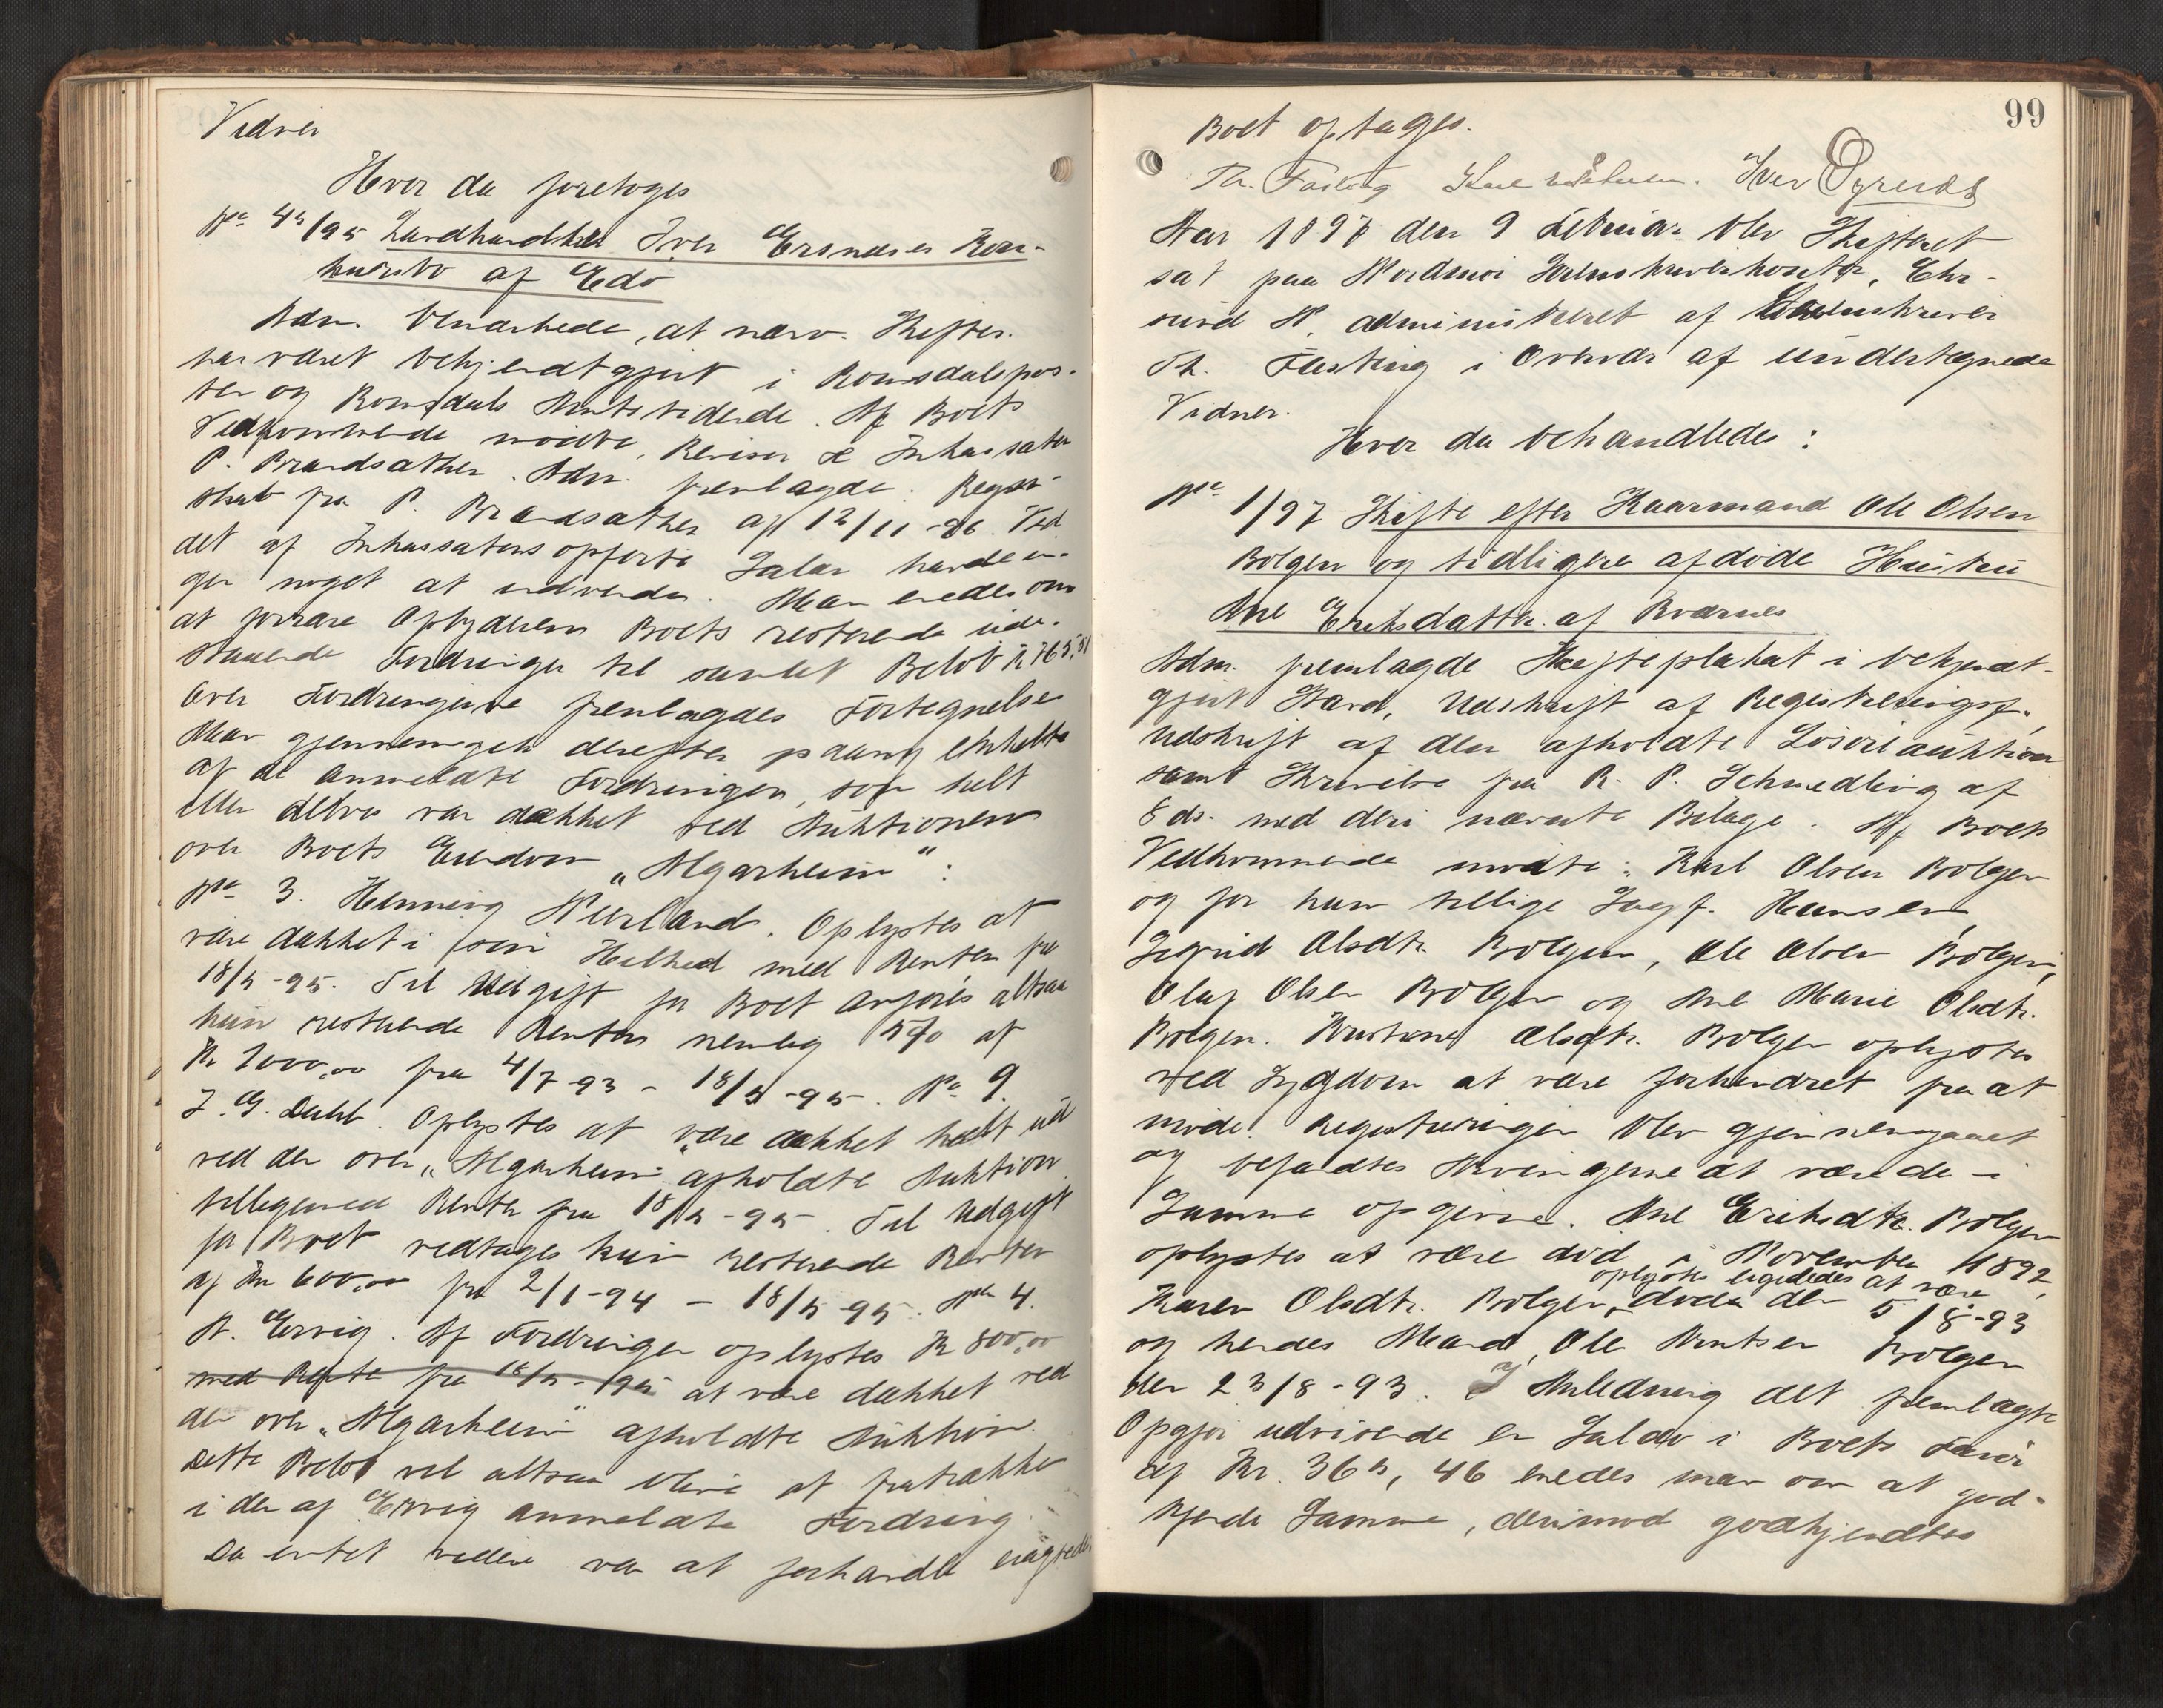 Vidner
Hvor da foretoges
No 45/95 Landhandler Iver Ersnæses Kon-
kursbo af Edø
Adm. bemærkede, at nærv. Skiftes.
har været bekjendtgjort i Romsdalspos-
ten og Romsdals Amtstidende. Af Boets
Vedkommende mødte, Revisor & Inkassator
P. Brandsæther. Adm. fremlagde: Regn-
skab fra P. Brandsæther af 12/11-96. Ved
det af Inkassators opførte Salær havde in-
gen noget at indvende. Man enedes om
at forære Opbyderen Boets resterende ude-
staaende Fordringer til samlet Beløb Kr 765,51
Over Fordringerne fremlagdes Fortegnelse
Man gjennemgik derefter paany enkelte
af de anmeldte Fordringer, som helt
eller delvis var dækket ved Auktionen
over Boets Eiendom „Algarheim":
No 3. Henning Neerland. Oplystes at
være dækket i sin Helhed med Renter fra
18/5-95. Til Udgift for Boet anføres altsaa
kun resterende Renter nemlig 5% af
Kr 1000,00 fra 4/7 93 - 18/5 -95. No 9.
J. G. Dahl. Oplystes at være dækket helt ud
ved den over „Algarheim" afholdte Auktion
tilligemed Renter fra 18/5 -95. Til Udgift
for Boet vedtages kun resterende Renter
af Kr 600,00 fra 2/1-94 - 18/5 95. No 4.
A. Ervig. Af Fordringen oplystes Kr 800,00
med Rente fra 18/5-195 at være dækket ved
den over „Algarheim" afholdte Auktion.
Dette Beløb vil altsaa blive at fratrække
i den af Ervig anmeldte Fordring.
Da intet videre var at forhandle
99
Boet optages.
Th. Fasting Iver Øyrendt
Aar 1897 den 9 Februar blev Skifteret
sat paa Nordmør Sorenskriverkontor, Chr-
sund N, administreret af Sorenskriver
Th. Fasting i Overvær af undertegnede
Vidner.
Hvor da behandledes:
No 1/97 Skifte efter Kaarmand Ole Olsen
Bolgen og tidligere afdøde Hustru
Ane Eriksdatter af Bværnes
Adm. fremlagde Skifteplakat i bekjendt-
gjort Stand, Udskrift af Registreringsf.,
Udskrift af den afholdte Løsøreauktion
samt Skrivelse fra R. P. Schmedling af
8 ds. med deri nævnte Bilage. Af Boets
Vedkommende mødte: Karl Olsen Bolgen
og for ham tillige Sagf. Hansen,
Sigrid Olsdtr. Bolgen, Ole Olsen Bolgen,
Olaf Olsen Bolgen og Ane Marie Olsdtr.
Bolgen. Kristine Olsdtr. Bolgen oplystes
ved Sygdom at være forhindret fra at
møde. Registreringen blev gjennemgaaet
og befandtes Arvingerne at være de i
Samme opgivne. Ane Eriksdtr. Bolgen
oplystes at være død i November 1892,
oplystes ligeledes at være
Karen Olsdtr. Bolgen, døde den 5/8-93
og hendes Mand, Ole Knutsen Bolgen
den 23/8-93. I Anledning af det fremlagte
Opgjør udvisende en Saldo i Boets Favør
af Kr. 365,46 enedes man om at god-
kjende Samme, derimod godkjendtes